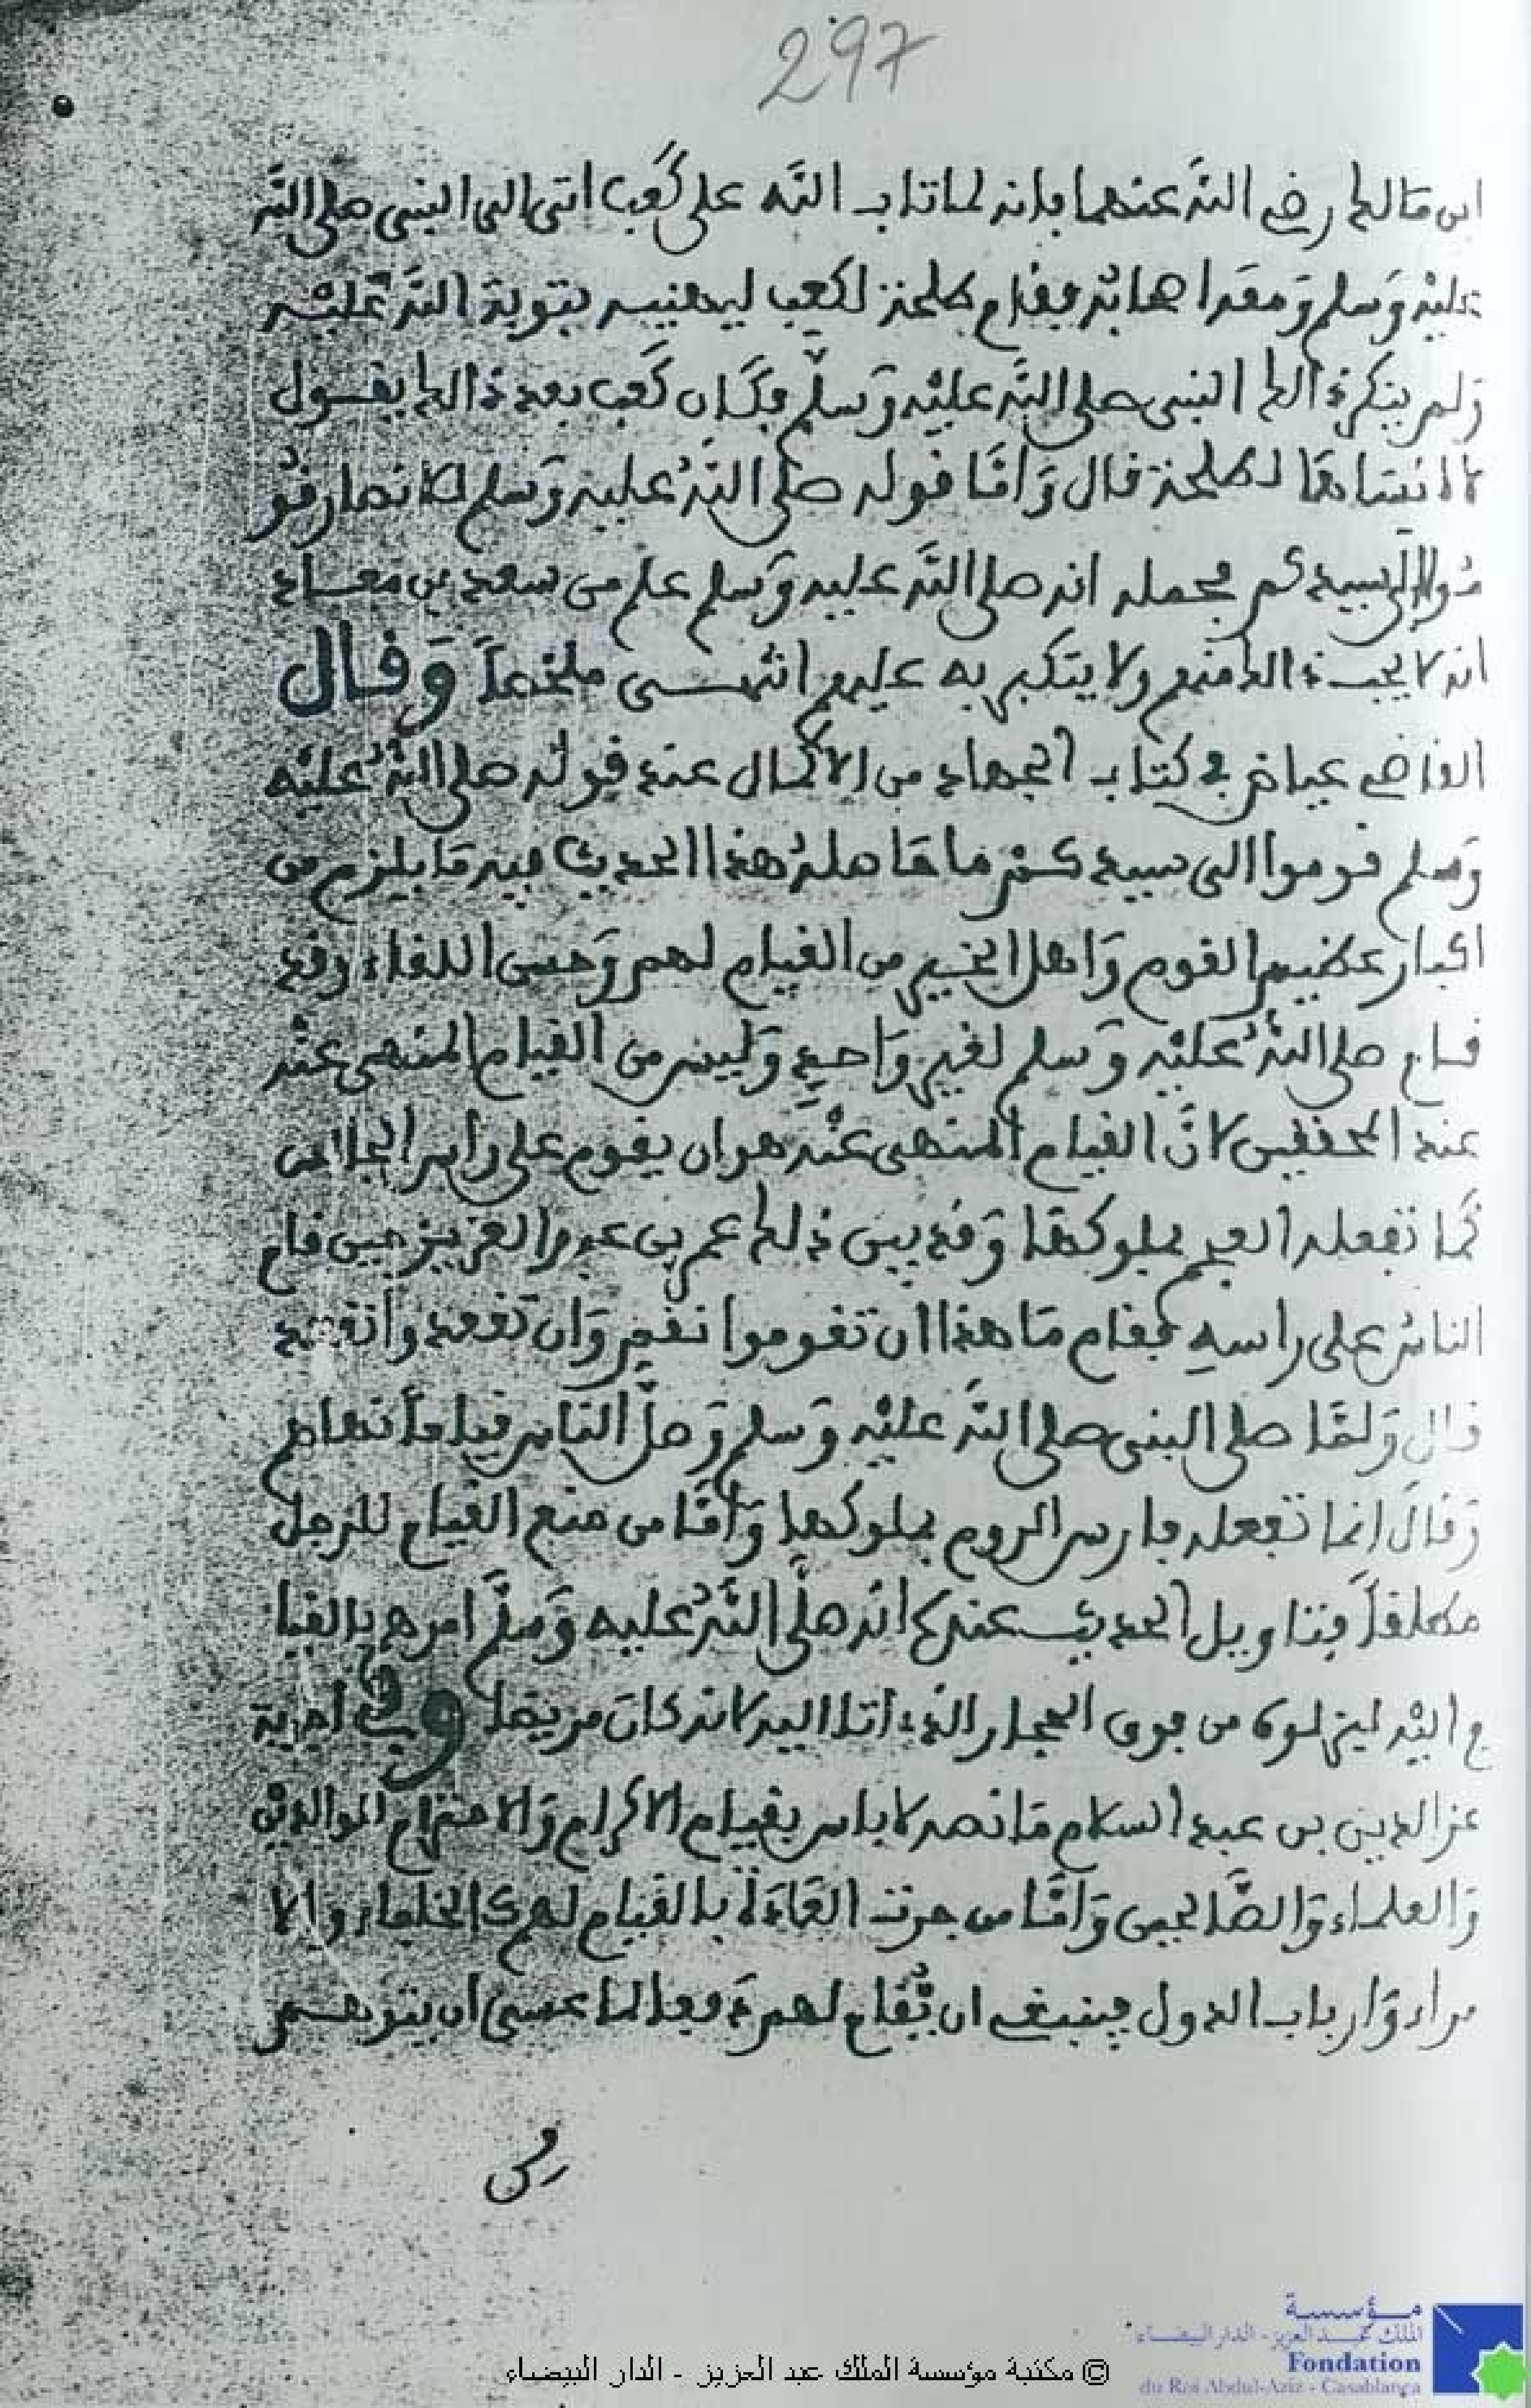 297
ابن مالك رضي الله عنهما فإنه لما تاب الله على كَعب اتى الى النبي صلى الله
عليه وَسلم وَمعه اصحابه فقام طلحة لكعب ليهنيه بتوبة الله عليه
وَلم ينكر ذالك النبي صلى الله عليه وَسلم فكَان كَعب بعد ذالك يقول
لا انساها لطلحة قال وَامَّا قوله صلى الله عليه وَسلم للانصار قو
مُوا الى سيدكم فحمله انه صلى الله عليه وَسلم علم من سعد بن معاذ
انه لا يحب ذالك منهم ولا يتكبر به عليهم انتهى ملخصا وَقال
القاضي عياض في كتاب الجهاد من الاكمال عند قوله صلى الله عليه
وَسلم قوموا الى سيدكم ما هاصله هذا الحديث فيه ما يلزم من
اكبار عظيم القوم وَاهل الخير من القيام لهم وَحسن اللقاء وقد
قام صلى الله عليه وَسلم لغير وَاحد وَليس من القيام المنهى عنه
عند المحققين لانَّ القيام المنهى عنه هو ان يقوم على راس الجالس
كَما تفعله العجم بملوكها وَقد بين ذلك عمر بن عبد العزيز حين قام
الناس على راسه فقام ما هذا ان تقوموا نقم وَان تقعدوا نقعد
قال وَلمَّا صلى النبي صلى الله عليه وَسلم وَصلَّ الناس قياما نهاهم
وَقال انما تفعله فارس الروم بملوكها وَامَّا من منع القيام للرجل
مطلقا فتاويل الحديث عنده انه صلَّى الله عليه وَسلَّم امرهم بالقيا
م اليه لينزلوه من فوق الحمار الذي اتا اليه لانه كان مريضا وفي اجوبة
عز الدين بن عبد السلام مَا نصه لا باس بقيام الاكرام وَالاحترام للوالدين
وَالعلماء وَالصَّالحين وَامَّا من جرت العَادَة بالقيام لهم كالخلفاء والا
مراء وَارباب الدول فينبغي ان يُّقام لهم دَفعا لما عسى ان يتوهم
من
© مكتبة مؤسسة الملك عبد العزيز - الدار البيضاء
مؤسسة
الملك عبد العزيز - الدار البيضاء
Fondation
du Roi Abdul-Aziz - Casablanca